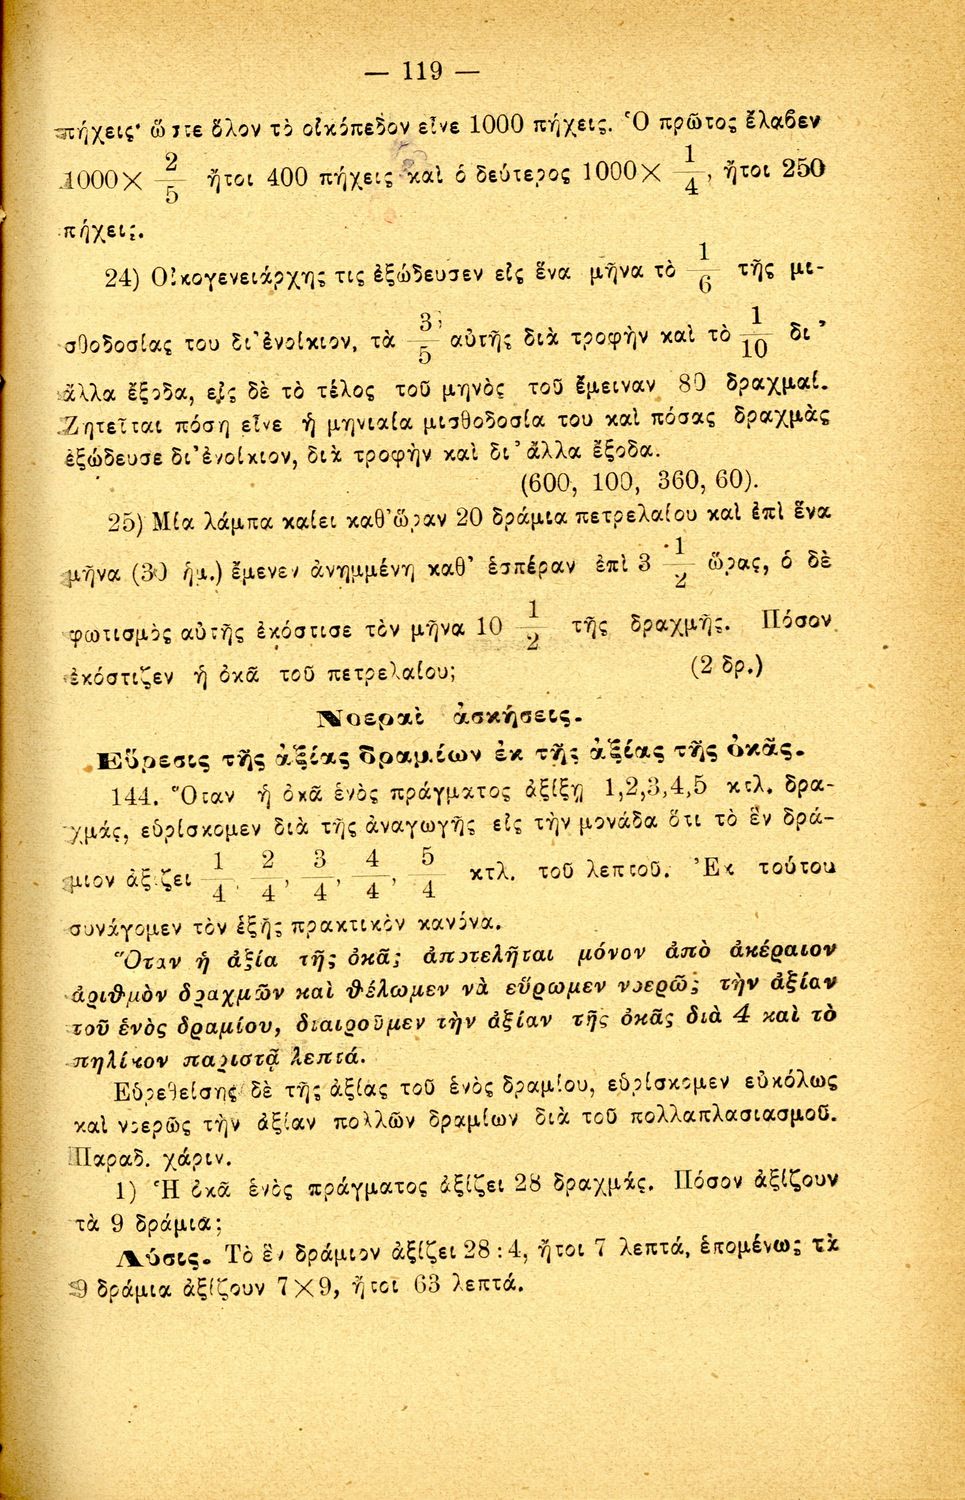 — 119 —
πήχεις· ὥστε ὅλον τὸ οἰκόπεδον εἶνε 1000 πήχεις. Ὁ πρῶτος ἔλαβεν
1000 × 2/5 ἤτοι 400 πήχεις καὶ ὁ δεύτερος 1000 × 1/4, ἤτοι 250
πήχεις.
24) Οἰκογενειάρχης τις ἐξώδευσεν εἰς ἕνα μῆνα τὸ 1/6 τῆς μι-
σθοδοσίας του δι’ἐνοίκιον, τὰ 3/5 αὐτῆς διὰ τροφὴν καὶ τὸ 1/10 δι’
ἄλλα ἔξοδα, εἰς δὲ τὸ τέλος τοῦ μηνὸς τοῦ ἔμειναν 80 δραχμαί.
Ζητεῖται πόση εἶνε ἡ μηνιαία μισθοδοσία του καὶ πόσας δραχμὰς
ἐξώδευσε δι’ἐνοίκιον, διὰ τροφὴν καὶ δι’ ἄλλα ἔξοδα.
(600, 100, 360, 60).
25) Μία λάμπα καίει καθ’ὥραν 20 δράμια πετρελαίου καὶ ἐπὶ ἕνα
μῆνα (30 ἡμ.) ἔμενεν ἀνημμένη καθ’ ἑσπέραν ἐπὶ 3 1/2 ὥρας, ὁ δὲ
φωτισμὸς αὐτῆς ἐκόστισε τὸν μῆνα 10 1/2 τῆς δραχμῆς. Πόσον
ἐκόστιζεν ἡ ὀκᾶ τοῦ πετρελαίου; (2 δρ.)
Νοεραὶ ἀσκήσεις.
Εὕρεσις τῆς ἀξίας δραμίων ἐκ τῆς ἀξίας τῆς ὀκᾶς.
144. Ὅταν ἡ ὀκᾶ ἑνὸς πράγματος ἀξίζῃ 1,2,3,4,5 κτλ. δρα-
χμάς, εὑρίσκομεν διὰ τῆς ἀναγωγῆς εἰς τὴν μονάδα ὅτι τὸ ἓν δρά-
μιον ἀξίζει 1/4, 2/4, 3/4, 4/4, 5/4 κτλ. τοῦ λεπτοῦ. Ἐκ τούτου
συνάγομεν τὸν ἑξῆς πρακτικὸν κανόνα.
Ὅταν ἡ ἀξία τῆς ὀκᾶς ἀποτελῆται μόνον ἀπὸ ἀκέραιον
ἀριθμὸν δραχμῶν καὶ θέλωμεν νὰ εὕρωμεν νοερῶς τὴν ἀξίαν
τοῦ ἑνὸς δραμίου, διαιροῦμεν τὴν ἀξίαν τῆς ὀκᾶς διὰ 4 καὶ τὸ
πηλίκον παριστᾷ λεπτά.
Εὑρεθείσης δὲ τῆς ἀξίας τοῦ ἑνὸς δραμίου, εὑρίσκομεν εὐκόλως
καὶ νοερῶς τὴν ἀξίαν πολλῶν δραμίων διὰ τοῦ πολλαπλασιασμοῦ.
Παραδ. χάριν.
1) Ἡ ὀκᾶ ἑνὸς πράγματος ἀξίζει 28 δραχμάς. Πόσον ἀξίζουν
τὰ 9 δράμια;
Λύσις. Τὸ ἓν δράμιον ἀξίζει 28 : 4, ἤτοι 7 λεπτά, ἑπομένως τὰ
9 δράμια ἀξίζουν 7×9, ἤτοι 63 λεπτά.